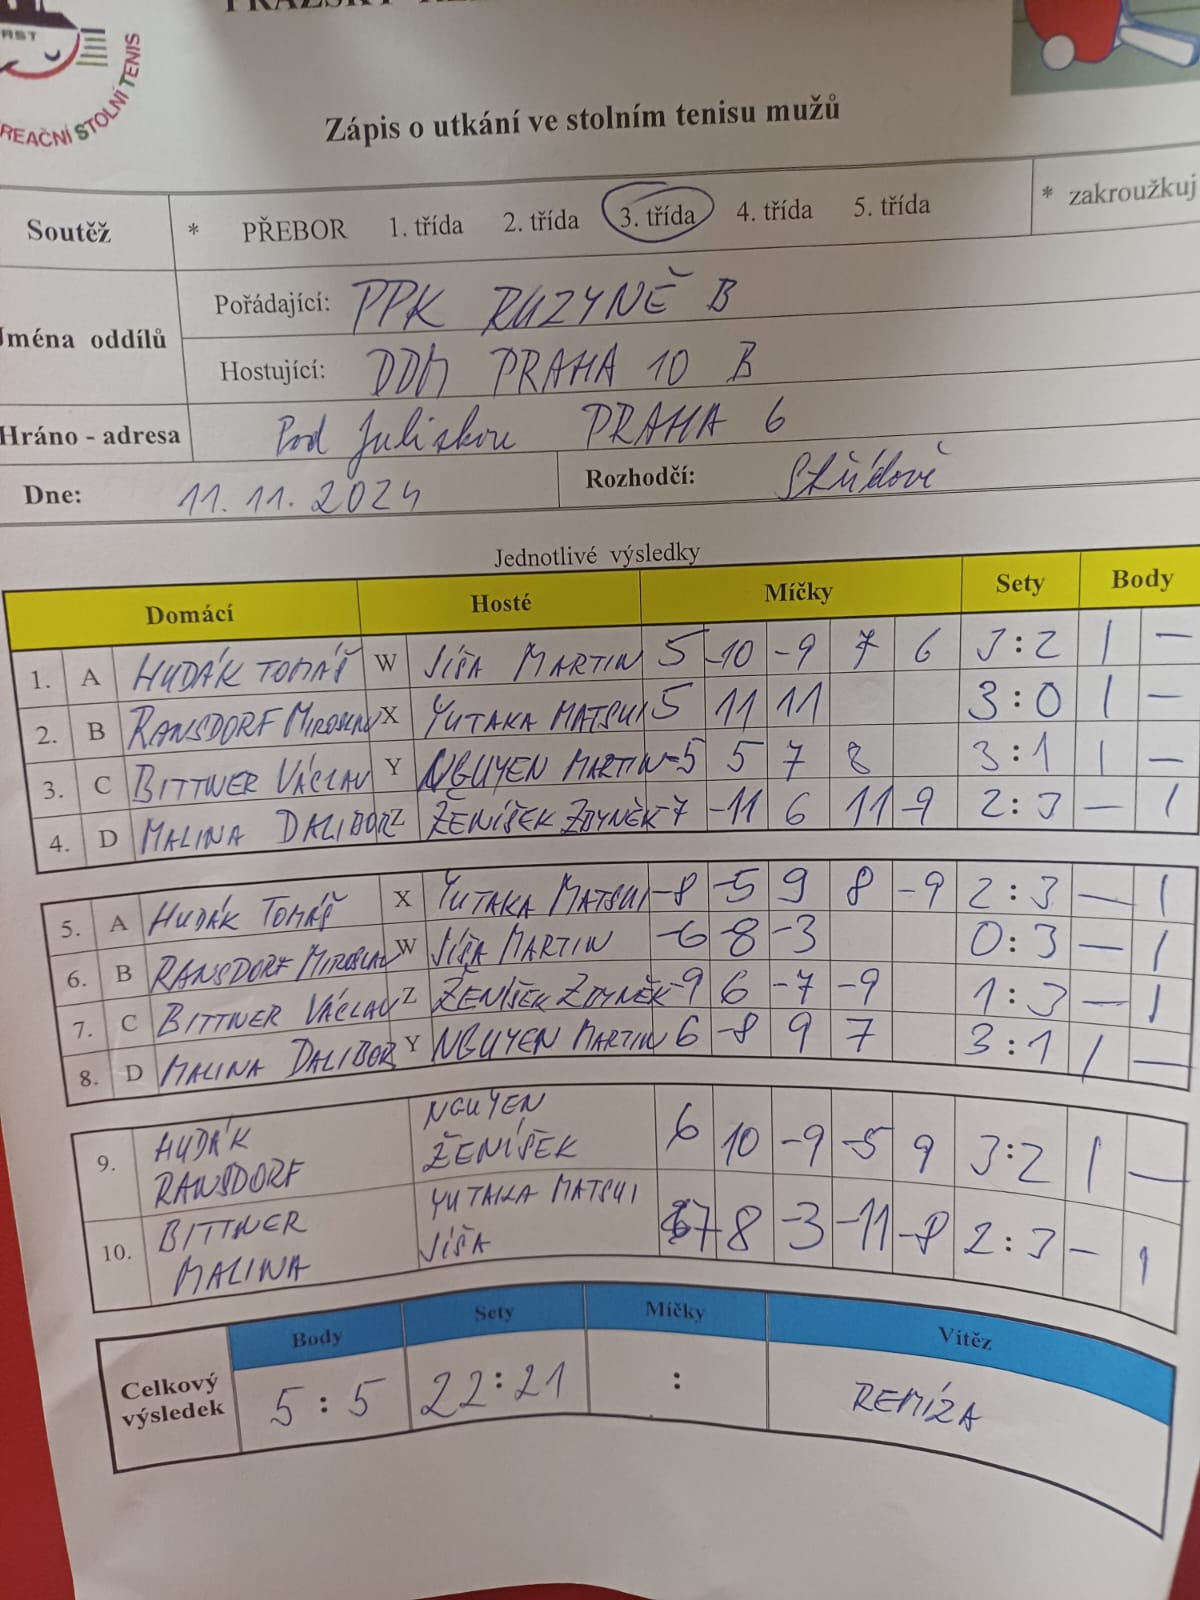 RST
REAČNÍ STOLNÍ TENIS
Zápis o utkání ve stolním tenisu mužů
Soutěž * PŘEBOR 1. třída 2. třída 3. třída 4. třída 5. třída * zakroužkuj
Jména oddílů
Pořádající: PPK RUZYNĚ B
Hostující: DDM PRAHA 10 B
Hráno - adresa Pod Juliskou PRAHA 6
Dne: 11.11.2024 Rozhodčí: Střídavě
Jednotlivé výsledky
Domácí Hosté Míčky Sety Body
1. A HUDÁK TOMÁŠ W JÍŠA MARTIN 5 -10 -9 7 6 3:2 1 —
2. B RANSDORF MIROSLAV X YUTAKA MATSUI 5 11 11 3:0 1 —
3. C BITTNER VÁCLAV Y NGUYEN MARTIN -5 5 7 8 3:1 1 —
4. D MALINA DALIBOR Z ŽENÍŠEK ZDYNĚK -7 -11 6 11 -9 2:3 — 1
5. A HUDÁK TOMÁŠ X YUTAKA MATSUI -8 -5 9 8 -9 2:3 — 1
6. B RANSDORF MIROSLAV W JÍŠA MARTIN -6 -8 -3 0:3 — 1
7. C BITTNER VÁCLAV Z ŽENÍŠEK ZDYNĚK -9 6 -7 -9 1:3 — 1
8. D MALINA DALIBOR Y NGUYEN MARTIN 6 -8 9 7 3:1 1 —
9. HUDÁK RANSDORF NGUYEN ŽENÍŠEK 6 10 -9 -5 9 3:2 1 —
10. BITTNER MALINA YUTAKA MATSUI JÍŠA 7 8 -3 -11 -8 2:3 — 1
Body Sety Míčky Vítěz
Celkový výsledek 5:5 22:21 : REMÍZA